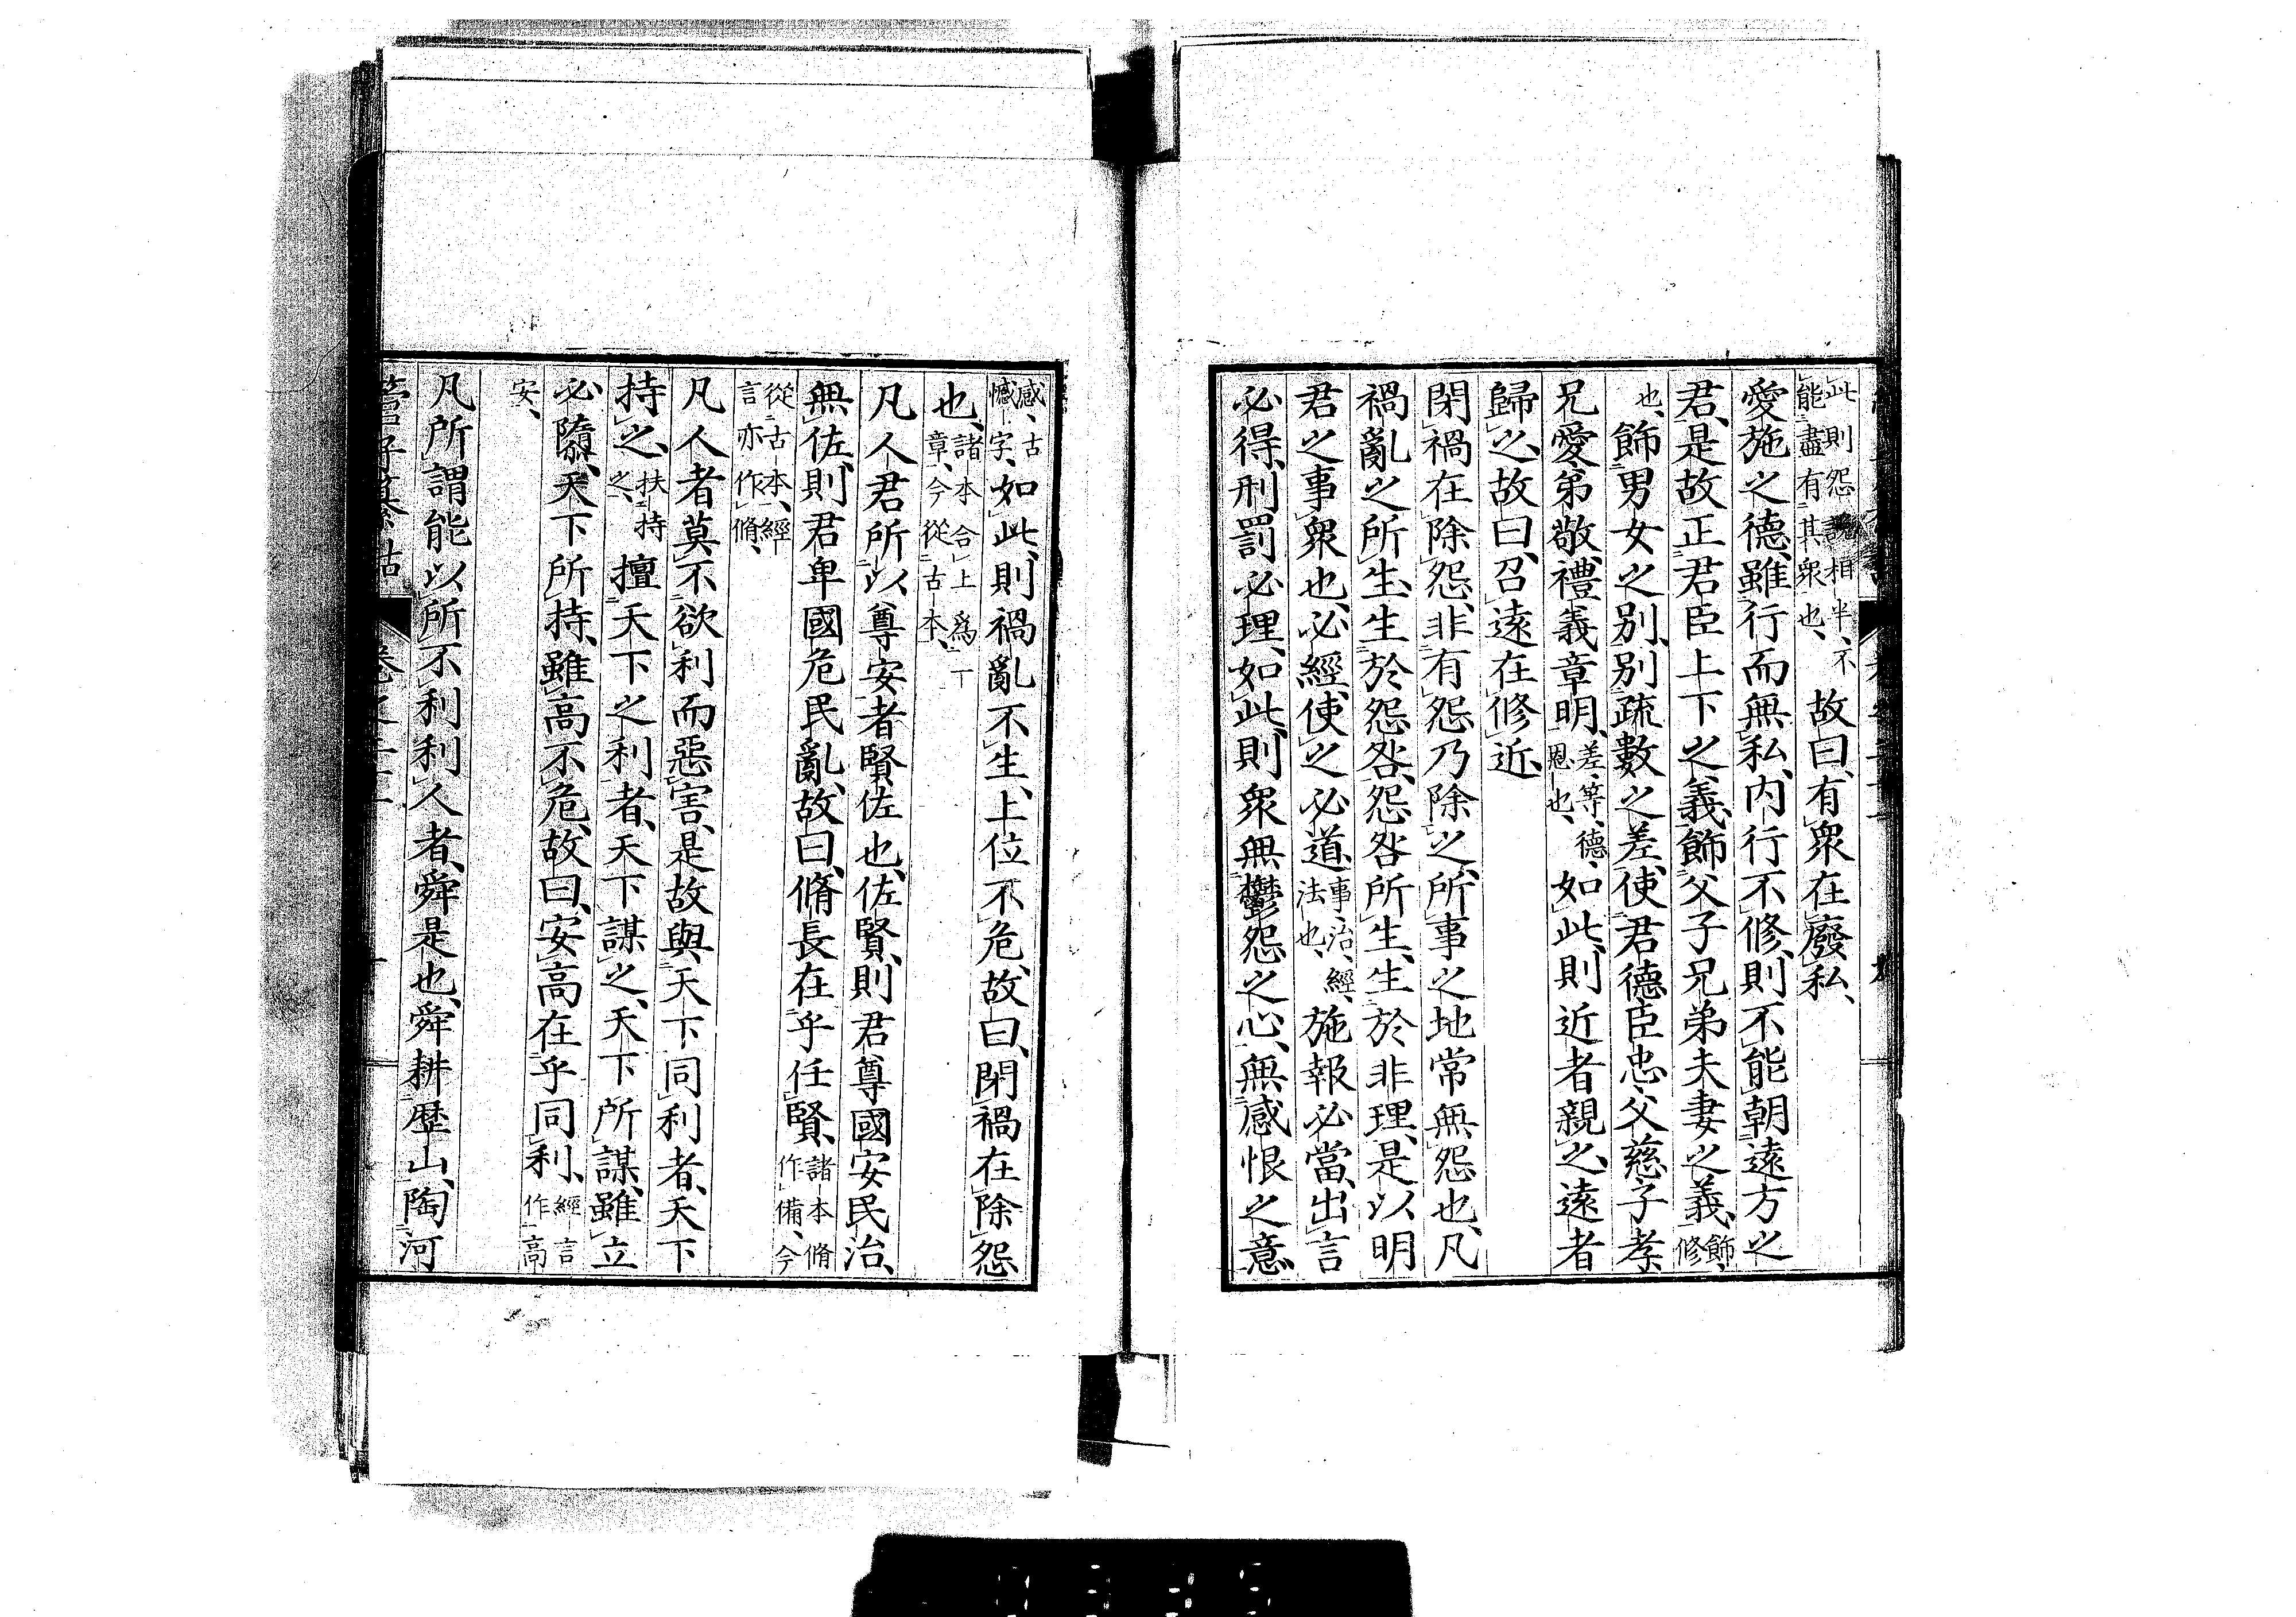 此則怨讟相半、不能盡有其衆也、故曰、有衆在廢私、
愛施之德、雖行而無私、內行不修、則不能朝遠方之
君、是故正君臣上下之義、飾父子兄弟夫妻之義、飾、修
也、飾男女之別、別疏數之差、使君德臣忠父慈子孝
兄愛弟敬、禮義章明、差、等、德、恩也、如此、則近者親之、遠者
歸之、故曰、召遠在修近、
閉禍在除怨、非有怨乃除之、所事之地常無怨也、凡
禍亂之所生、生於怨咎、怨咎所生、生於非理、是以明
君之事衆也、必經、使之必道、事、治、經、法也、施報必當、出言
必得、刑罰必理、如此、則衆無鬱怨之心、無感恨之意、
感、古憾字、如此、則禍亂不生、上位不危、故曰、閉禍在除怨
也、諸本合上爲一章、今從古本、
凡人君所以尊安者賢佐也、佐賢、則君尊國安民治、
無佐、則君卑國危民亂、故曰、脩長在乎任賢、諸本脩作備、今
從古本、經言亦作脩、
凡人者莫不欲利而惡害、是故與天下同利者、天下
持之、扶持之、擅天下之利者、天下謀之、天下所謀、雖立
必隳、天下所持、雖高不危、故曰、安高在乎同利、經言作高
安、
凡所謂能以所不利利人者、舜是也、舜耕歷山、陶河